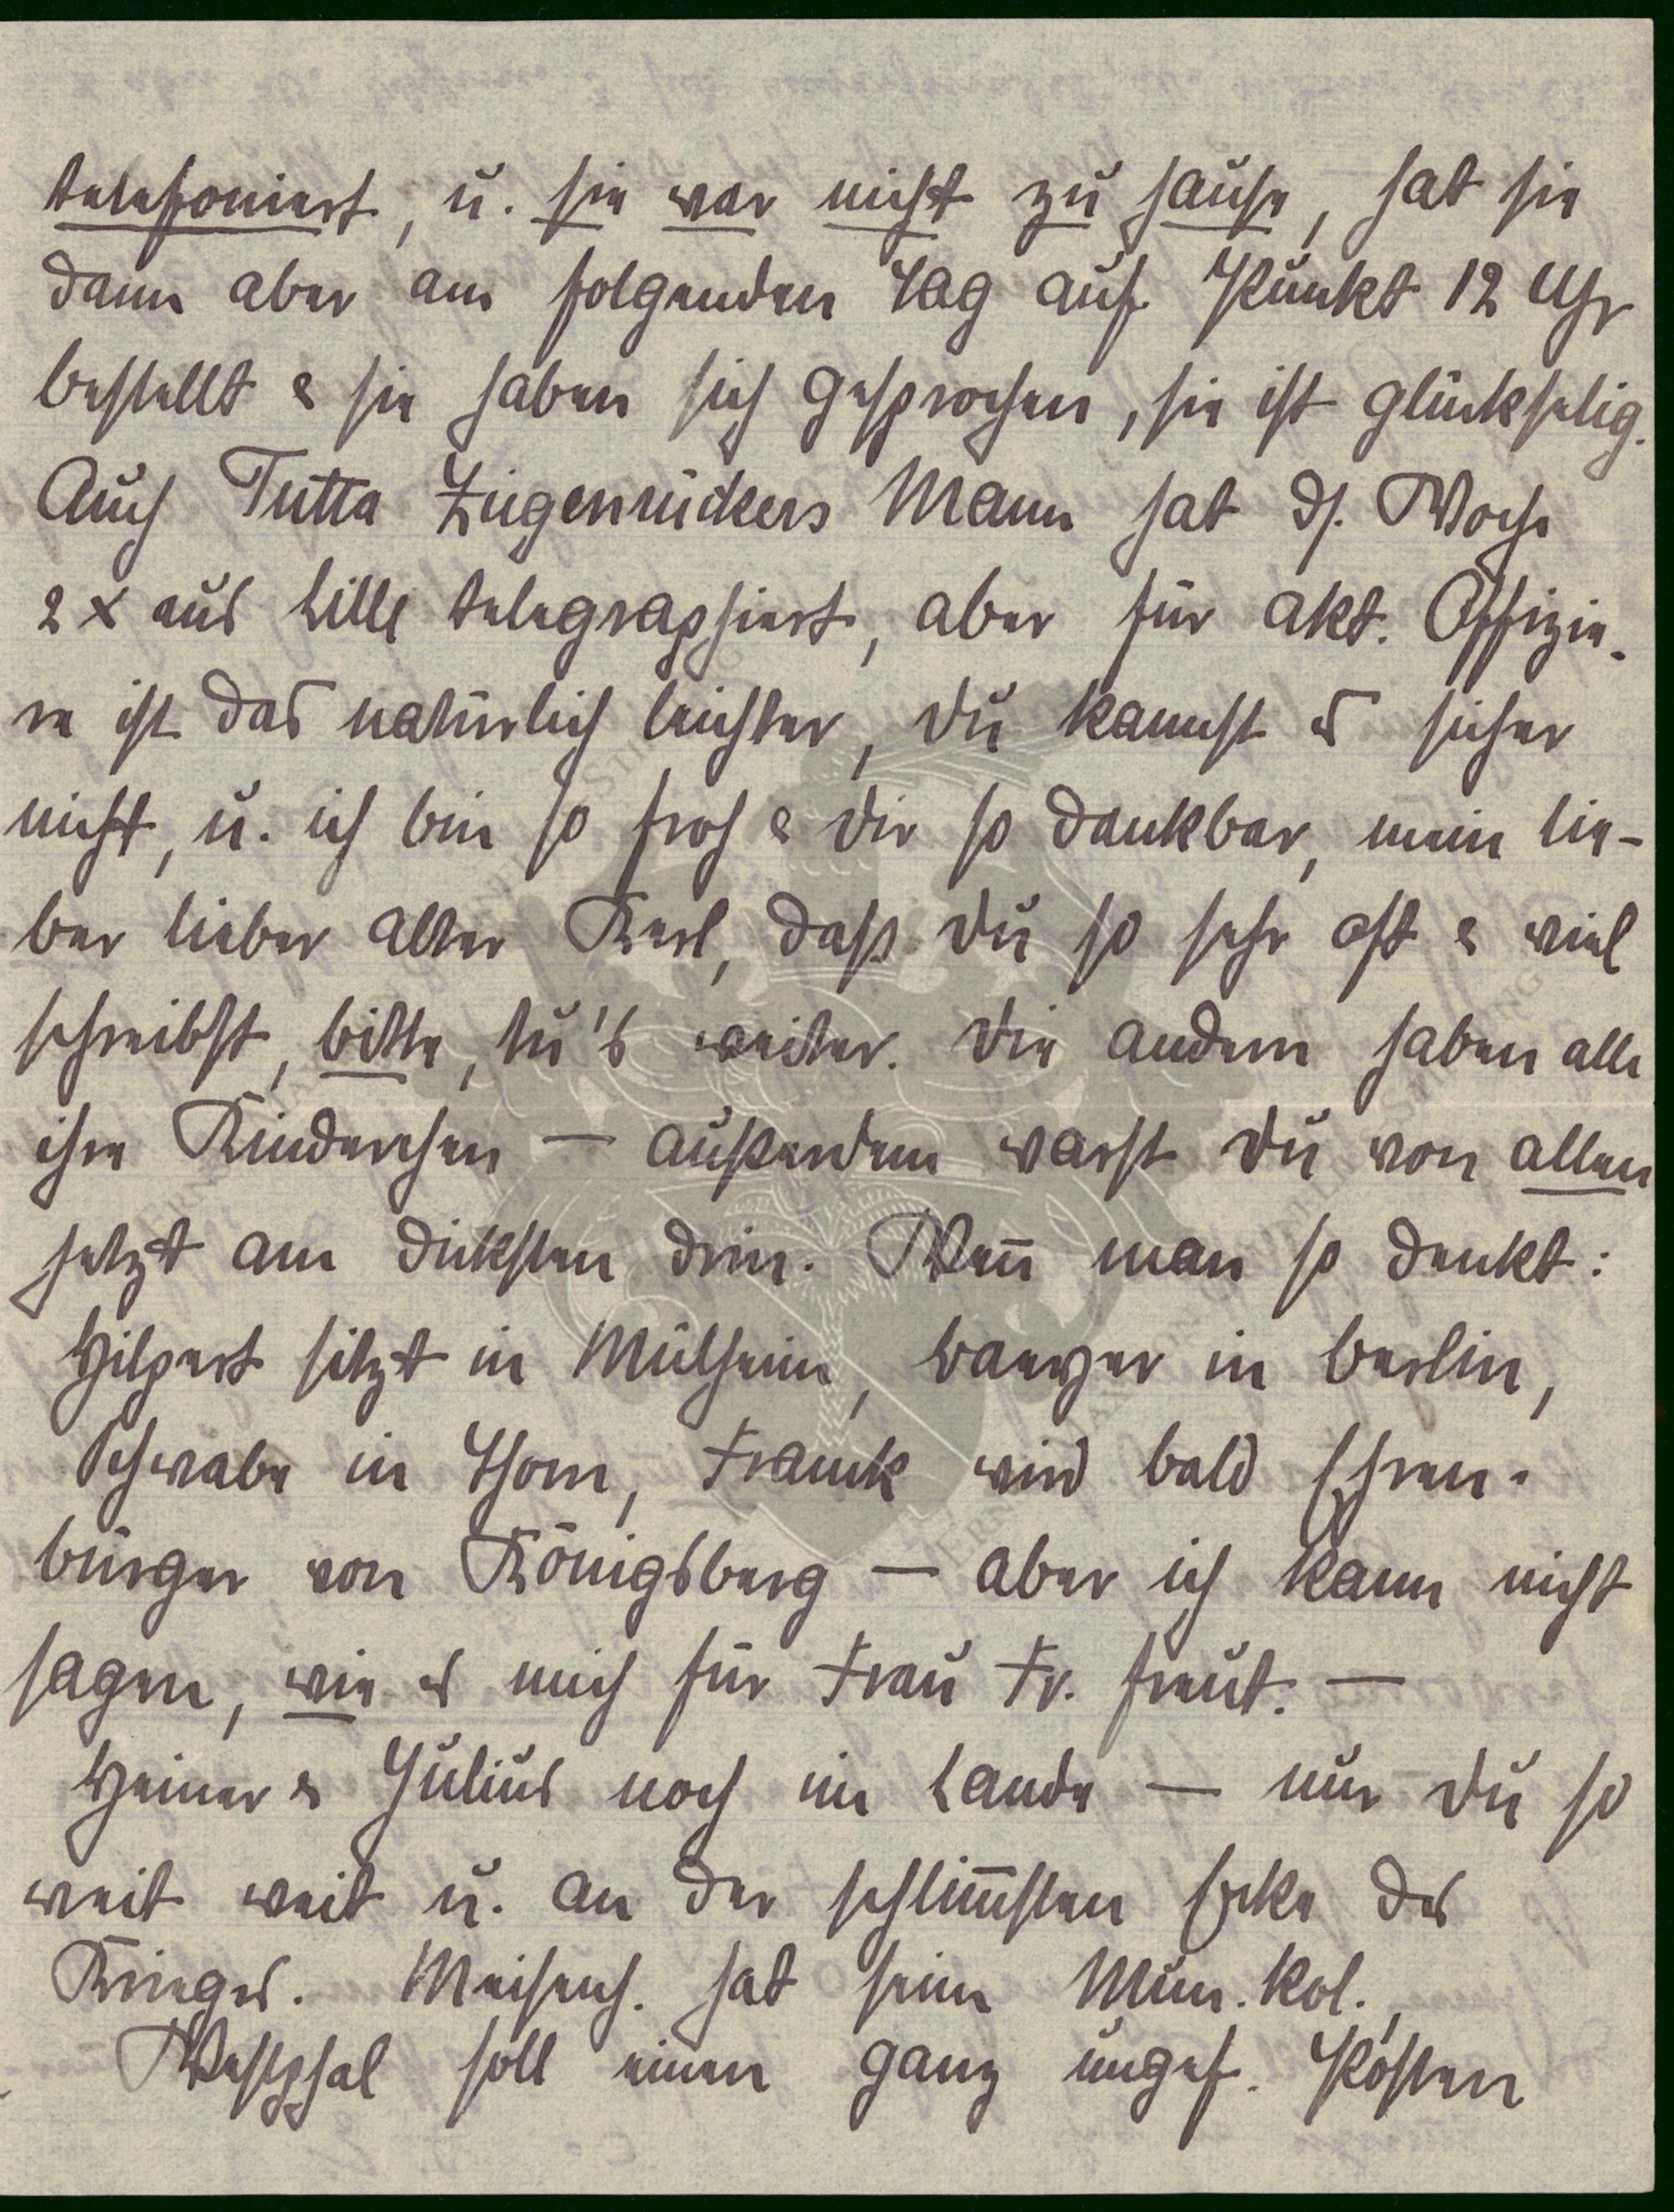 telefoniert, u. sie war nicht zu hause, hat sie
dann aber am folgenden Tag auf Punkt 12 Uhr
bestellt & sie haben sich gesprochen, sie ist glückselig.
Auch Tutta Zügenrückers Mann hat ds. Woche
2 x aus Lille telegraphiert, aber für akt. Offizie-
re ist das natürlich leichter, du kannst es sicher
nicht, u. ich bin so froh & dir so dankbar, mein lie-
ber lieber alter Kerl, daß du so sehr oft & viel
schreibst, bitte, tu's weiter. Die andern haben alle
ihre Kinderchen — außerdem warst du von allen
jetzt am dicksten drin. Wenn̄ man so denkt:
Hilpert sitzt in Mülheim, Baeyer in Berlin,
Schwabe in Thorn, Franck wird bald Ehren-
bürger von Königsberg — aber ich kann nicht
sagen, wie es mich für Frau Fr. freut. —
Heiner & Julius noch im Lande — nur du so
weit weit u. an der schlim̄sten Ecke des
Krieges. Meisenh. hat seine Mun. Kol.,
Westphal soll einen ganz ungef. Posten